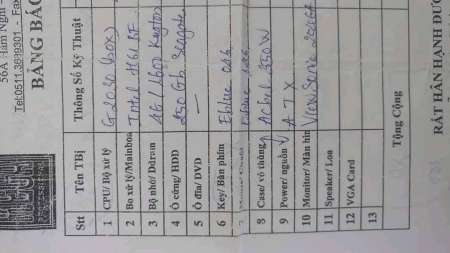 56A Hàm Nghi -
Tel:0511.3689301 - Fax
BẢNG BÁO
Stt Tên TBị Thông Số Kỹ Thuật
1 CPU/ Bộ xử lý G2030 (box)
2 Bo xử lý/Mainboa Intel H61 BF
3 Bộ nhớ/ Ddram 4G/1600 Kington
4 Ô cứng/ HDD 250 Gb Seagate
5 Ô đĩa/ DVD —
6 Key/ Bàn phím Eblue 046
7
8 Case/ vỏ thùng
9 Power/ nguồn A7X
10 Monitor/ Màn hìn View Sonic
11 Speaker/ Loa
12 VGA Card
13
Tổng Cộng
RẤT HÂN HẠNH ĐƯỢ